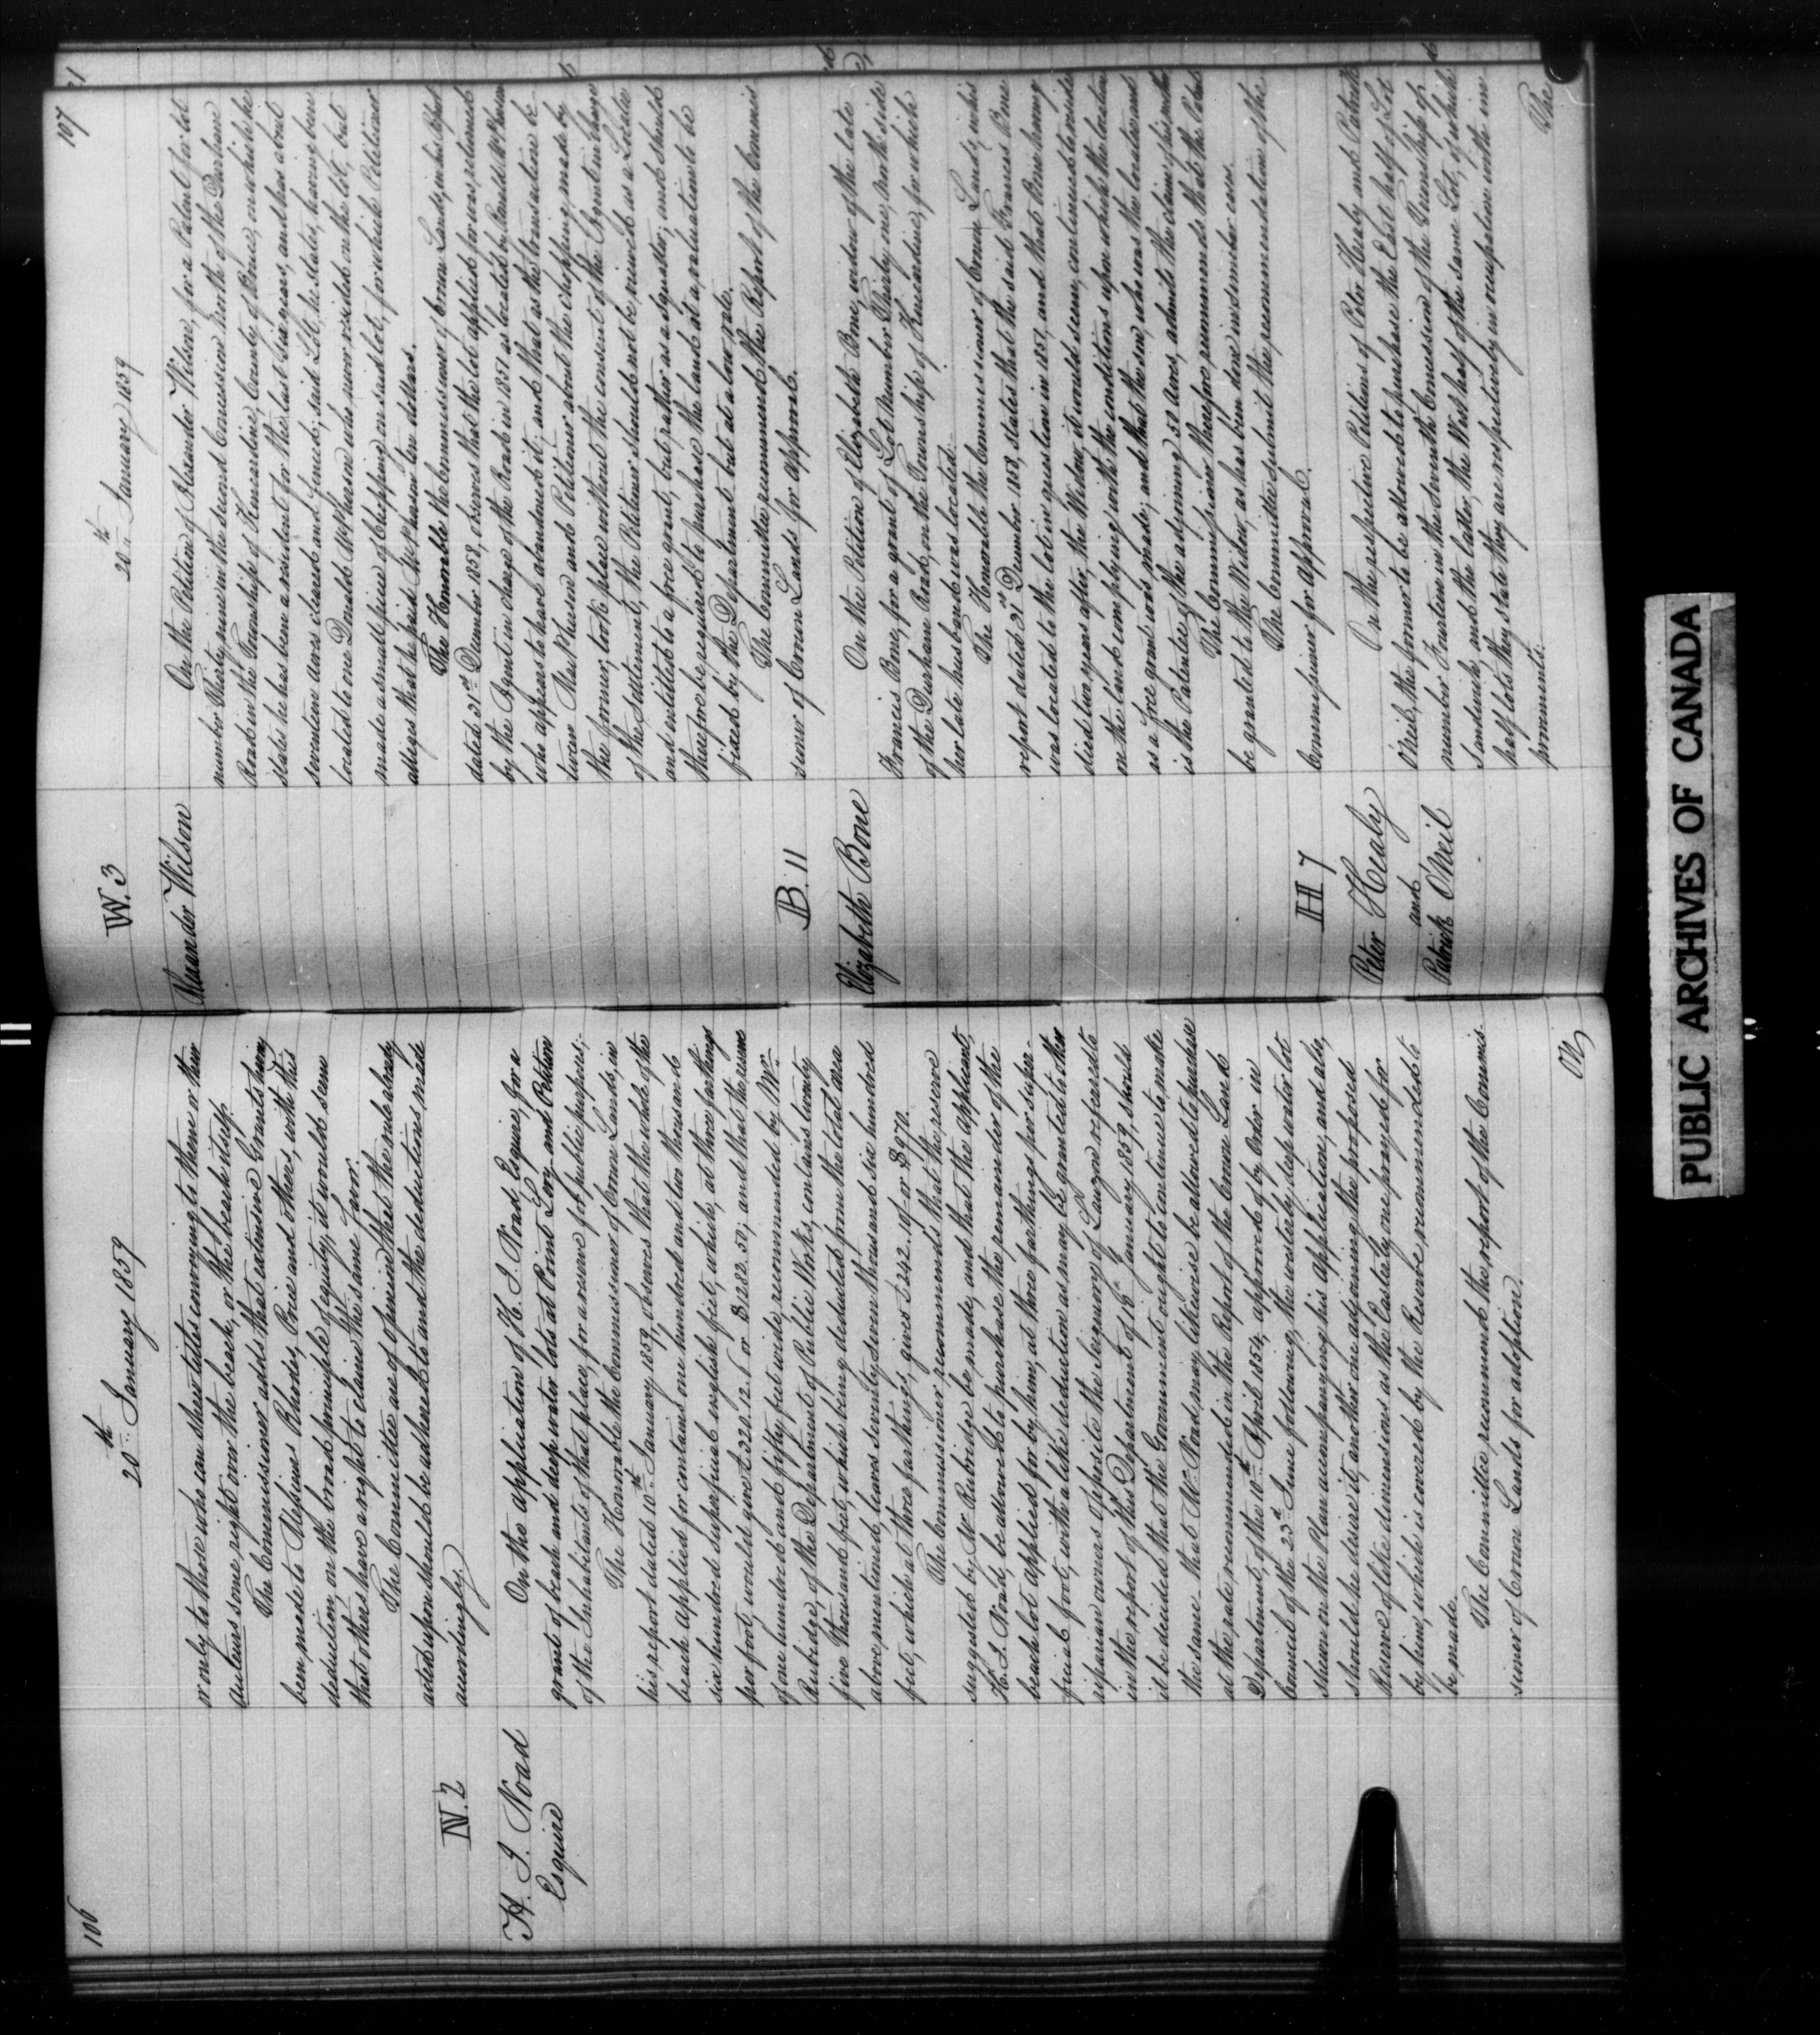 106
20th January 1859
or only to those who can shew titles conveying to them or their
auteurs some right over the beach, or the beach itself.
The Commissioner adds that extensive Grants having
been made to Messieurs Rhodes, Price and others, with this
deduction, on the broad principle of equity, it would seem
that others have a right to claim the same favor.
The Committee are of opinion that the rule already
acted upon should be adhered to and the deductions made
accordingly.
N. 2
H. J. Noad
Esquire
On the application of H. J. Noad Esquire, for a
grant of beach and deep water lots at Point Levy and Petition
of the Inhabitants of that place, for a reserve for public purposes;
The Honorable the Commissioner of Crown Lands, in
his report dated 10th January 1859, observes that the whole of the
beach applied for contains one hundred and ten thousand
six hundred superficial english feet, which, at three farthings
per foot, would give £320.12.6 or $1282.50; and that the reserve
of one hundred and fifty feet wide, recommended by Mr.
Rubidge, of the Department of Public Works, contains twenty
five thousand feet, which being deducted from the total area
above mentioned, leaves seventy seven thousand six hundred
feet, which at three farthings, gives £242.10/- or $970.
The Commissioner recommends that the reserve
suggested by Mr. Rubridge be made, and that the applicant,
H. J. Noad, be allowed to purchase the remainder of the
beach lot applied for by him, at three farthings per super-
ficial foot, with a like deduction as may be granted to other
riparian owners opposite the Seigniory of Lauzon referred to
in the report of this Department of 16 January 1859, should
it be decided that the Government ought to continue to make
the same. that Mr. Noad may likewise be allowed to purchase
at the rate recommended in the Report of the Crown Land
Department, of the 10th April 1854, approved of by Order in
Council of the 23d June following, the westerly deep water lot
shewn on the Plan accompanying his application, and also,
should he desire it, another one adjoining the proposed
Reserve of like dimensions as the Easterly one prayed for
by him, which is covered by the Reserve recommended to
be made.
The Committee recommend the report of the Commis-
sioner of Crown Lands for adoption.
On
107
20th January 1859
W. 3
Alexander Wilson
On the Petition of Alexander Wilson, for a Patent for lot
number Thirty nine in the second Concession North of the Durham
Road in the Township of Kincardine, County of Bruce, on which he
states he has been a resident for the last six years, and has about
seventeen acres cleared and fenced; said Lot, he states, having been
located to one Donald McPherson who never resided on the lot, but
made a small piece of chopping on said lot, for which Petitioner
alleges that he paid McPherson ten dollars.
The Honorable the Commissioner of Crown Lands, in his Report
dated 31st December 1858, observes that the lot applied for was returned
by the Agent in charge of the Road in 1851 as located by Donald McPherson
who appears to have abandoned it; and that as the transaction be
tween MacPherson and Petitioner about the chopping made by
the former, took place without the consent of the Agent in charge
of the Settlement, the Petitioner should not be viewed as a Locatee
and entitled to a free grant, but rather as a squatter; and should
therefore be required to purchase the land at a valuation to be
fixed by the Department but at a low rate.
The Committee recommend the Report of the Commis
sioner of Crown Lands for approval.
B. 11
Elizabeth Bone
On the Petition of Elizabeth Bone, widow of the late
Francis Bone, for a grant of Lot number Thirty one, North side
of the Durham Road, in the Township of Kincardine, for which
her late husband was located.
The Honorable the Commissioner of Crown Lands, in his
report dated 31st December 1858, states that the said Francis Bone
was located to the lot in question in 1851, and that Bone having
died two years after, the Widow, it would seem, continued to reside
on the land complying with the conditions upon which the location
as a free grant was made; and that the son, who was the locatee and
is the Patentee of the adjoining 50 acres, admits the claim of his mother.
The Commissioner therefore, recommends that the Patent
be granted to the Widow, as has been done in similar cases.
The Committee submit the recommendation of the
Commissioner for approval.
H 7
Peter Healy
and
Patrick O'Neil
On the respective Petitions of Peter Healy and Patrick
O'Neil, the former to be allowed to purchase the East half of Lot
number Fourteen in the seventh Concession of the Township of
Sandwich, and the latter, the West half of the same Lot, of which
half lots they state they are respectively in occupation with im
provements.
The
PUBLIC ARCHIVES OF CANADA